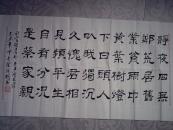 靜夜四無
鄰荒居舊
業貧雨中
黃葉樹燈
下白頭人
以我獨沉
久愧君相
見頻平生
自有分況
是蔡家親